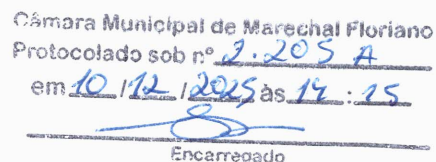 Câmara Municipal de Marechal Floriano
Protocolado sob nº 2.205 A
em 10/12/2025 às 14:25
Encarregado